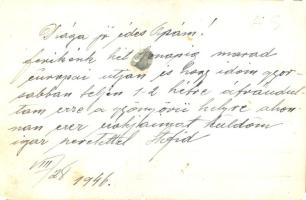 Drága jó édes Apám!
hónapig marad
európai útján és hogy időm gyor-
sabban teljen 1-2 hétre áfrándul-
tam erre a gyönyörű helyre aho-
nnan ezer csókjaimat küldöm
igaz szeretettel
VIII/28 1946.